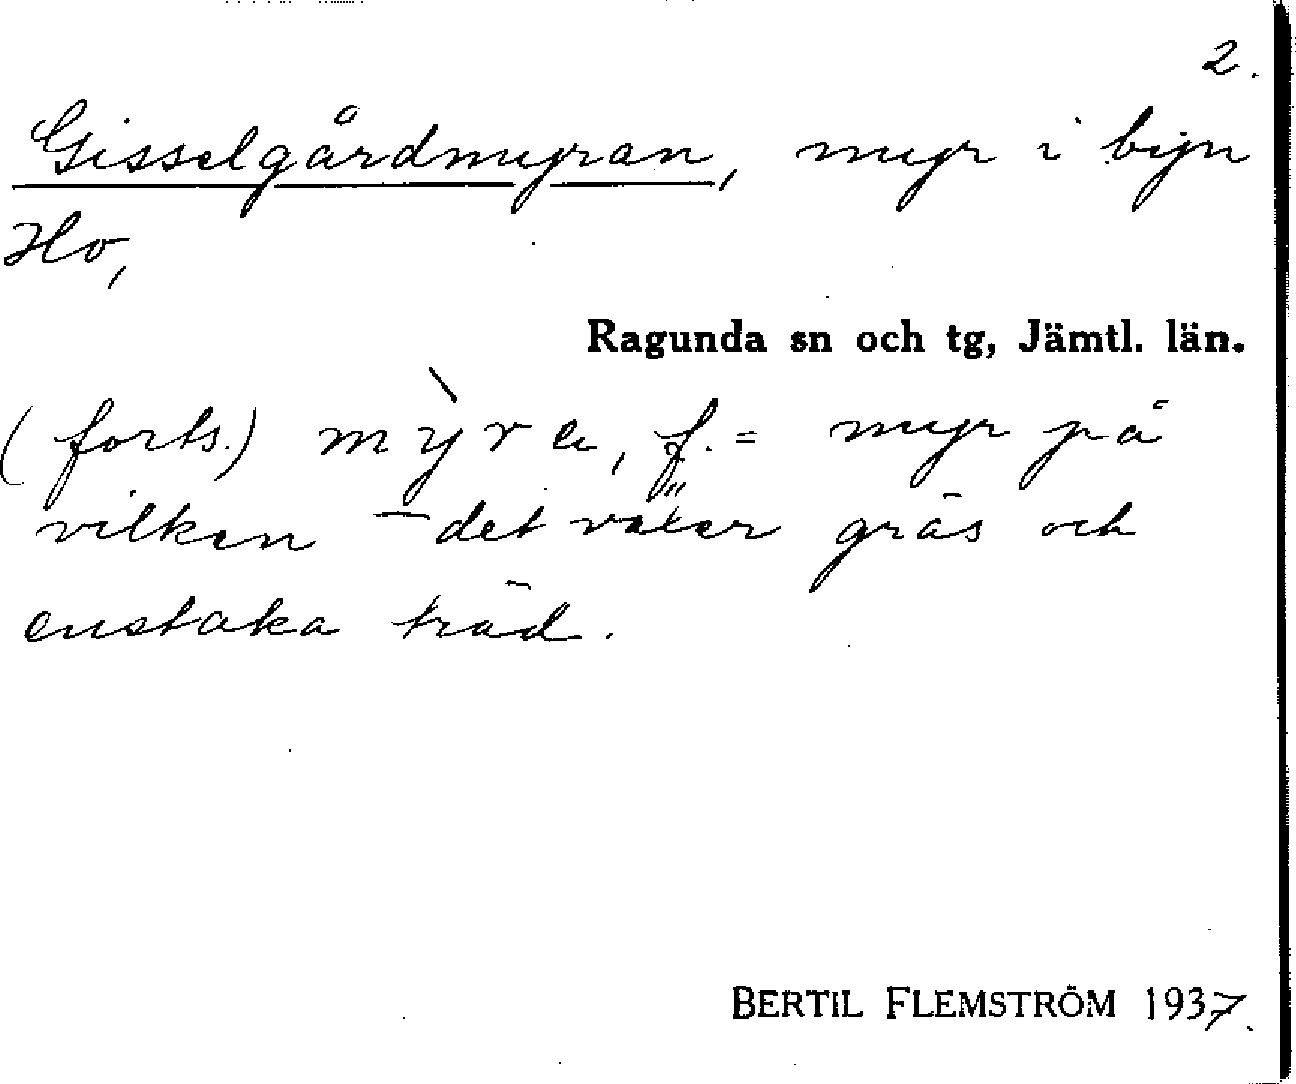 2.
Gisselgårdmyran, myr i byn
Ho,
Ragunda sn och tg, Jämtl. län.
(forts.) mỳra, f. = myr på
vilken det växer gräs och
enstaka träd.
BERTIL FLEMSTRÖM 1937.